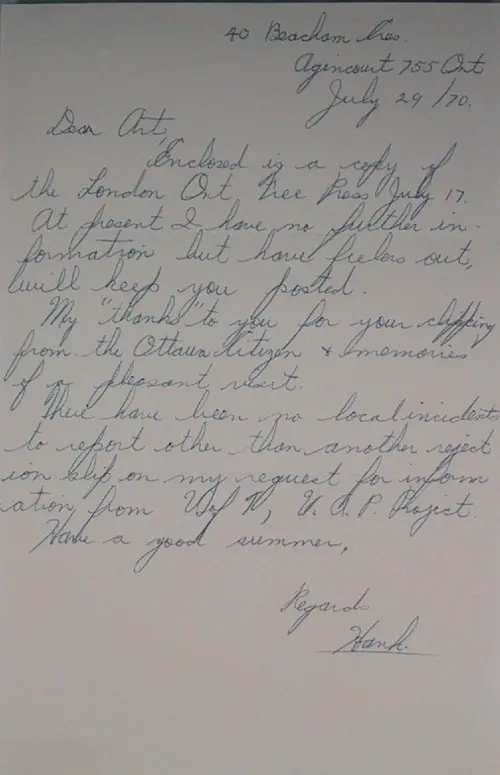 40 Beacham Cres.
Agincourt 755 Ont
July 29/70.
Dear Art,
Enclosed is a copy of
the London Ont Free Press July 17.
At present I have no further in-
formation but have feelers out,
will keep you posted.
My "thanks" to you for your clipping
from the Ottawa Citizen & memories
of a pleasant visit.
There have been no local incidents
to report other than another reject
ion slip on my request for inform
ation, from U of N, U. A. P. Project.
Have a good summer,
Regards
Hank.